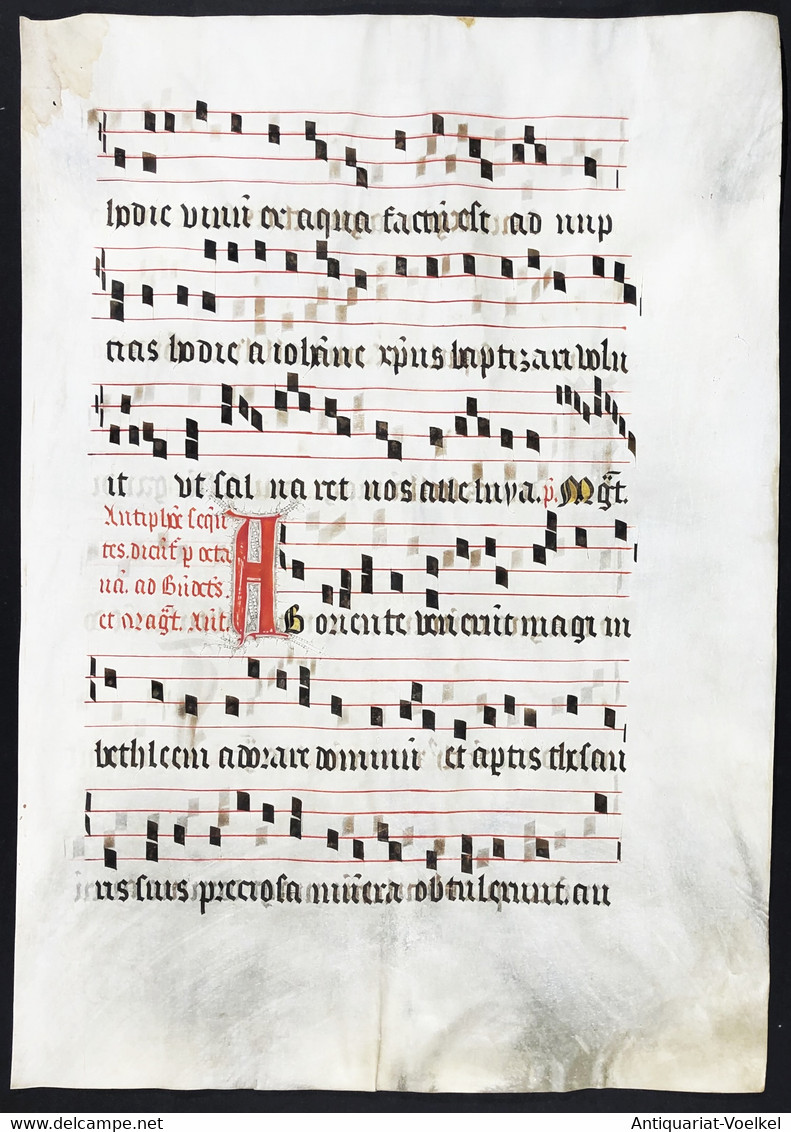 hodie vinū ex aqua factū est ad nup
cias hodie a iohāne xp̄us baptizari volu
it vt sal na ret nos alleluya. p̄. Mḡt.
Antiphōe sequē
tes. dicūt̄ p octa
uā. ad Bn̄dcts̄.
et Magt̄. Ant̄.
AB oriente venerūt magi in
bethleem adorare dominū et aptis thesau
ris suis preciosa mūera obtulerunt. an
Antiquariat-Voelkel